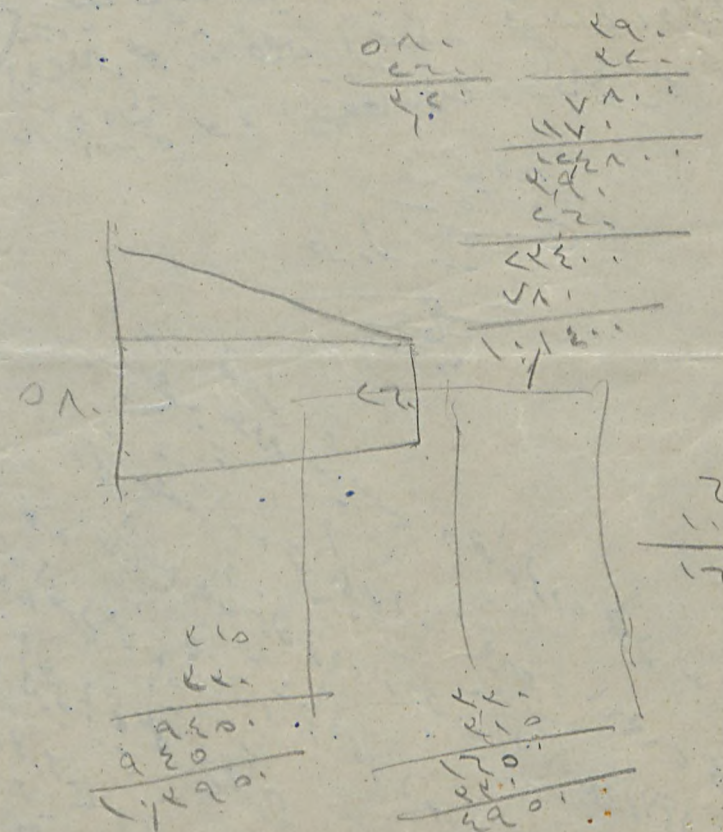 ٥٨٠
٢٦٠
٣٢٠
٣٩٠
٣٢٠
٧٨٠٠
١١٧٠
١٢٤٨٠٠
٣٩٠
٢٦٠
٢٣٤٠٠
٧٨٠
١٠١٤٠٠
٥٨٠
٢٦٠
٣١٥
٣٣٠
٩٤٥٠
٩٤٥
١٠٣٩٥٠
٣٣٠
٣١٥
١٦٥٠
٤٩٥٠